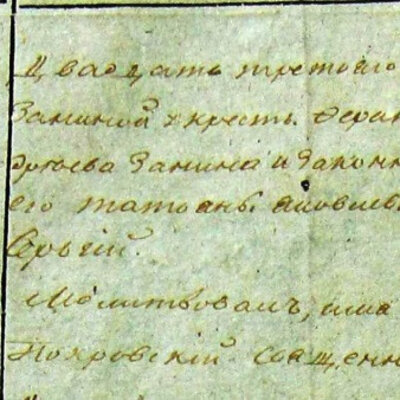 Двадцать третьяго
Заминой крестъ. Фера
Замина и Законн
его татьяны яковлев
Сергий.
Молитвовалъ, има
Покровский Священн